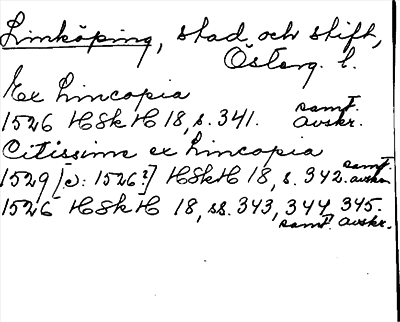 Linköping, stad och stift,
Österg. l.
Ex Lincopia
1526 HSkH 18, s. 341. samt. avskr.
Citissime ex Lincopia
1529 [ɔ: 1526?] HSkH 18, s. 342. samt. avskr.
1526 HSkH 18, ss. 343, 344, 345.
samt. avskr.